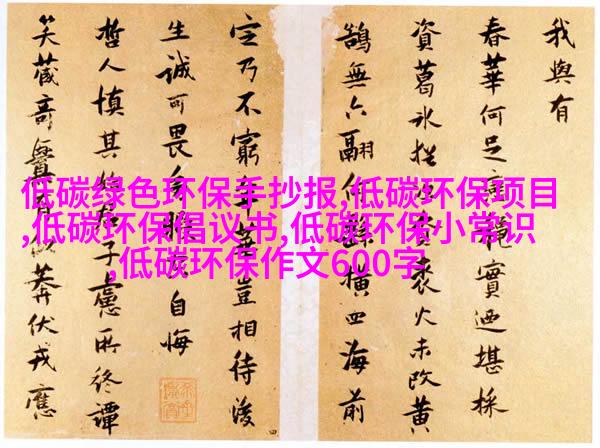 我與有
春華何足實迺堪採
資葛冰裘火未改黄
鵠無六翮何橫四海前
定乃不窮年華豈相待後
生誠可畏自悔
哲人慎其子慮所終譚
笑藏奇莽伏戎應
四
低碳绿色环保手抄报,低碳环保项目
,低碳环保倡议书,低碳环保小常识
,低碳环保作文600字